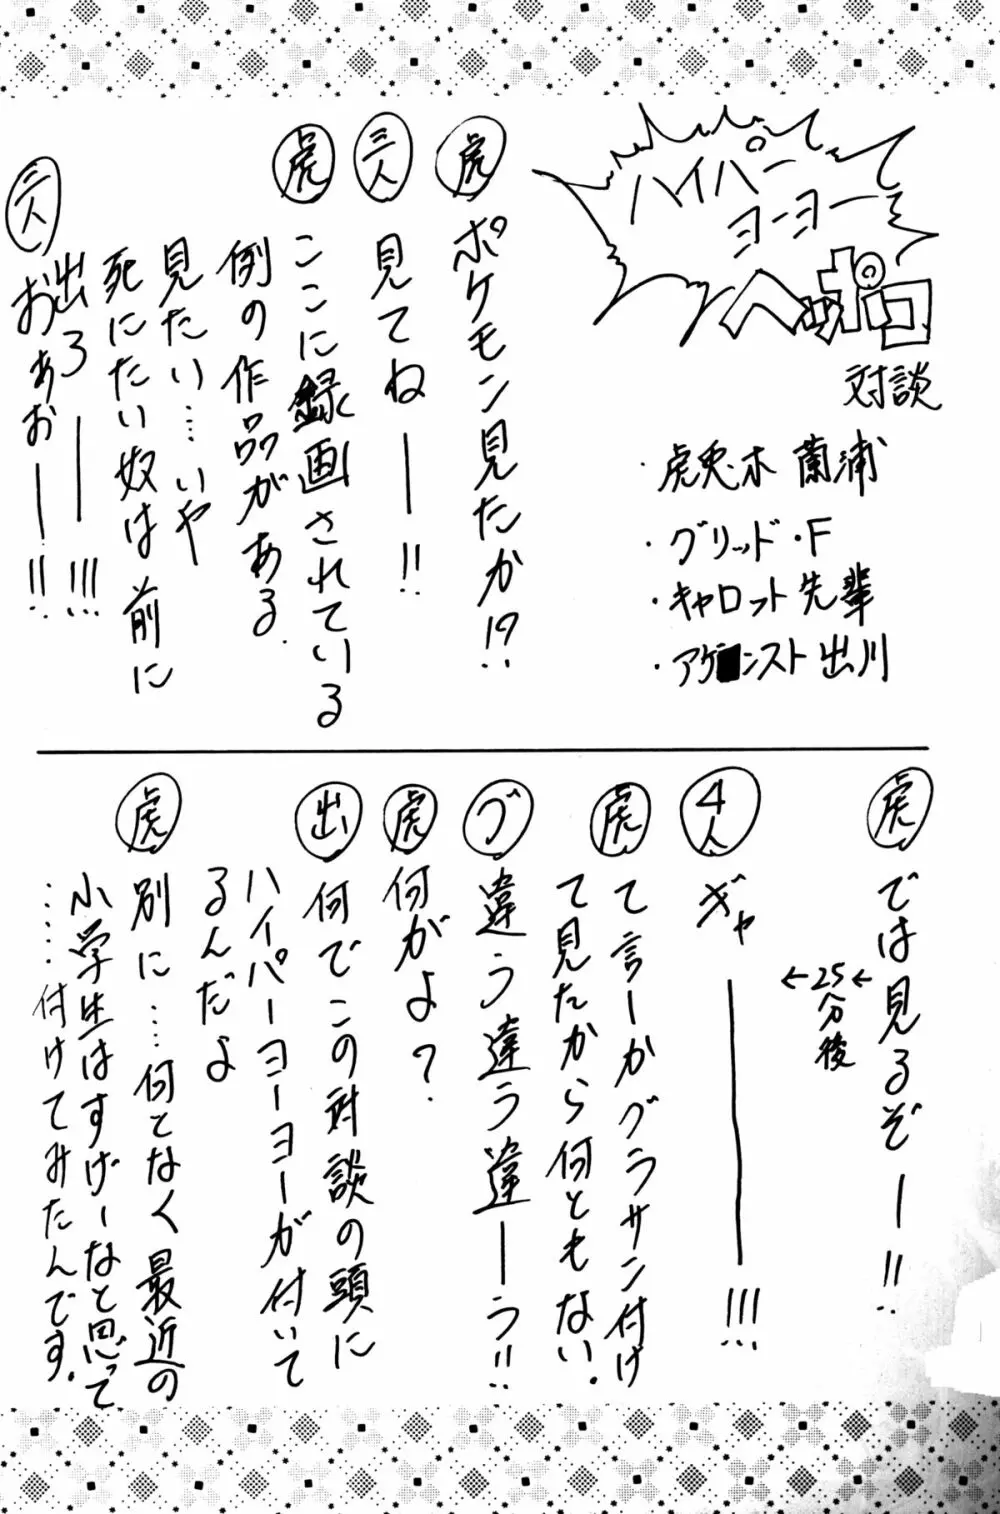 ハイパー
ヨーヨー
へっぽこ
対談
・虎兎木 蘭浦
・グリッド・F
・キャロット先輩
・アゲンスト出川
虎 ポケモン見たか!?
三人 見てねー!!
虎 ここに録画されている
例の作品がある.
見たい……いや
死にたい奴は前に
出ろー!!!
三人 おぁぉー!!
虎 では見るぞー!!
←25分後←
4人 ギャー!!!
虎 て言ーかグラサン付け
て見たから何ともない.
グ 違う違う違ーう!!
虎 何がよ?
出 何でこの対談の頭に
ハイパーヨーヨーが付いて
るんだよ
虎 別に……何となく最近の
小学生はすげーなと思って
……付けてみたんです.